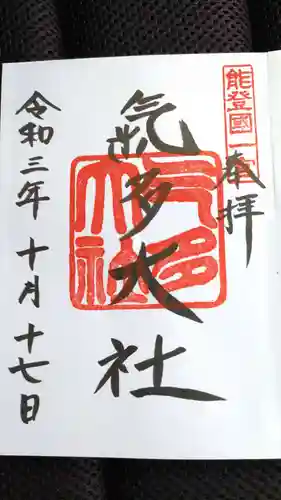 能登國一宮
奉拝
氣多大社
氣多大社
令和三年十月十七日